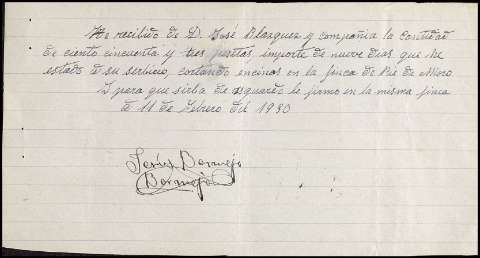 He recibido de D. José Velazquez y compañia la Contidad
de ciento cincuenta y tres pesetas importe de nueve dias que he
estado á su serbicio, cortando encinas en la finca de Pie de Moro
Y para que sirba de rsguardo lo firmo en la misma finca
á 11 de Febrero del 1930
Jesús Bermejo
Bermejo